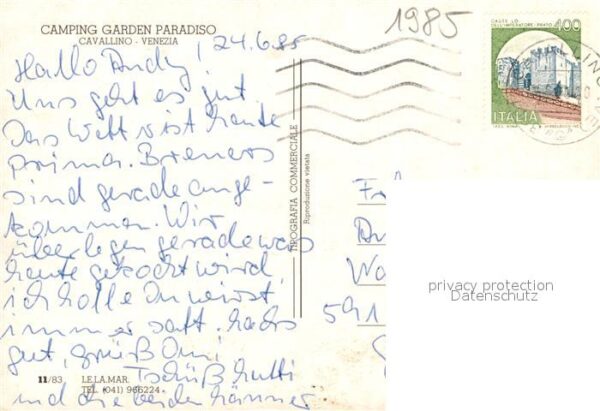 1985
CAMPING GARDEN PARADISO
CAVALLINO - VENEZIA
24.6.85
Hallo Andy,
Uns geht es gut
Das Wetter ist heute
prima. Breners
sind gerade ange-
kommen. Wir
überlegen gerade was
heute gekocht wird,
ich hoffe Du wirst
immer satt. Machs
gut, grüß Omi
Tschüß Mutti
und die beiden Männer
11/83
LE.LA.MAR.
TEL. (041) 966224
TIPOGRAFIA COMMERCIALE
Riproduzione vietata
CASTELLO
DELL'IMPERATORE - PRATO
400
ITALIA
591
privacy protection
Datenschutz